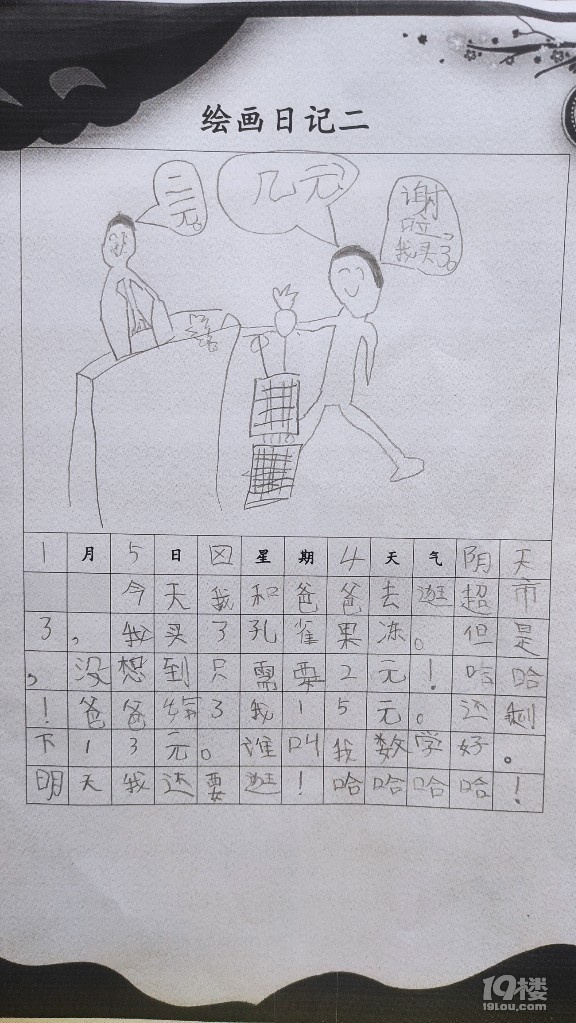 绘画日记二
二元。
几元
谢
啦,
我买了。
1月5日 星期4天气阴天
今天我和爸爸去逛超市
了,我买了孔雀果冻。但是
,没想到只需要2元!哈哈
!爸爸给了我15元。还剩
下13元。谁叫我数学好。
明天我还要逛!哈哈哈哈!
19楼
19lou.com